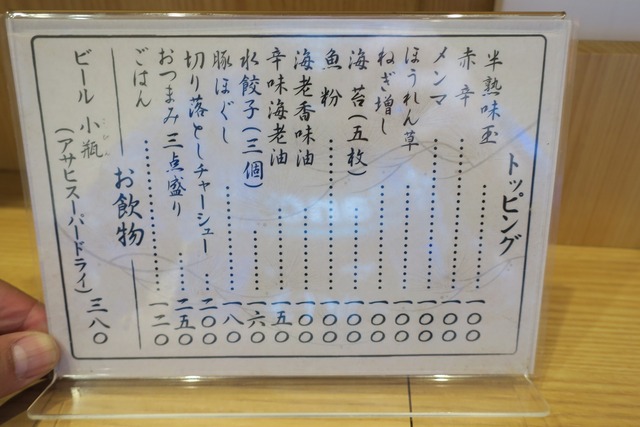 トッピング
半熟味玉 一〇〇
赤辛 一〇〇
メンマ 一〇〇
ほうれん草 一〇〇
ねぎ増し 一〇〇
海苔(五枚) 一〇〇
魚粉 一〇〇
海老香味油 一〇〇
辛味海老油 一五〇
水餃子(三個) 一六〇
豚ほぐし 一八〇
切り落としチャーシュー 二〇〇
おつまみ三点盛り 二五〇
ごはん 一二〇
お飲物
ビール 小瓶
(アサヒスーパードライ) 三八〇